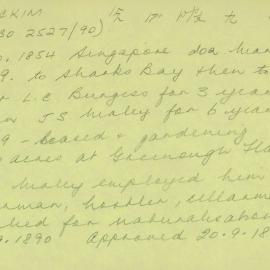 CKIM
30 2527/90)
1854 Singapore doa
9. to Sharks Bay then to
L.C. Burgess for 3 years
J S Maley for 6 years
9 - leased & gardening
acres at Greenough Fla
Maley employed him
man, hostler, cellarm
lied for naturalisation
9.1890 Approved 20.9.18